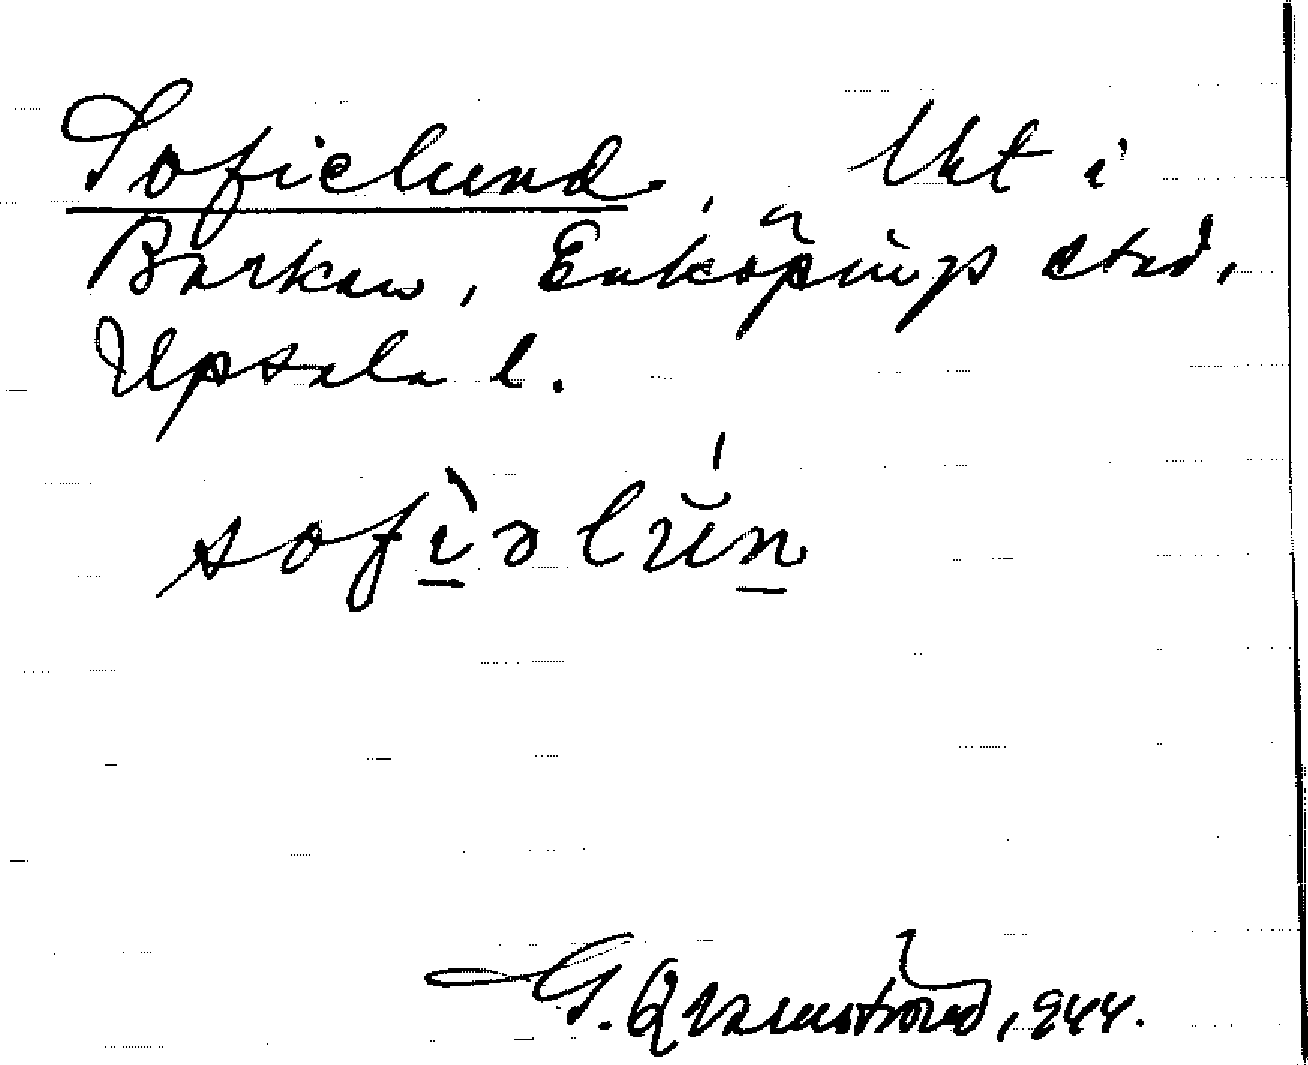 Sofielund, Uht i
Barkaw, Enköpings stad,
Upsala l.
sofìəlŭ́n
G. Qvarnström, 1944.